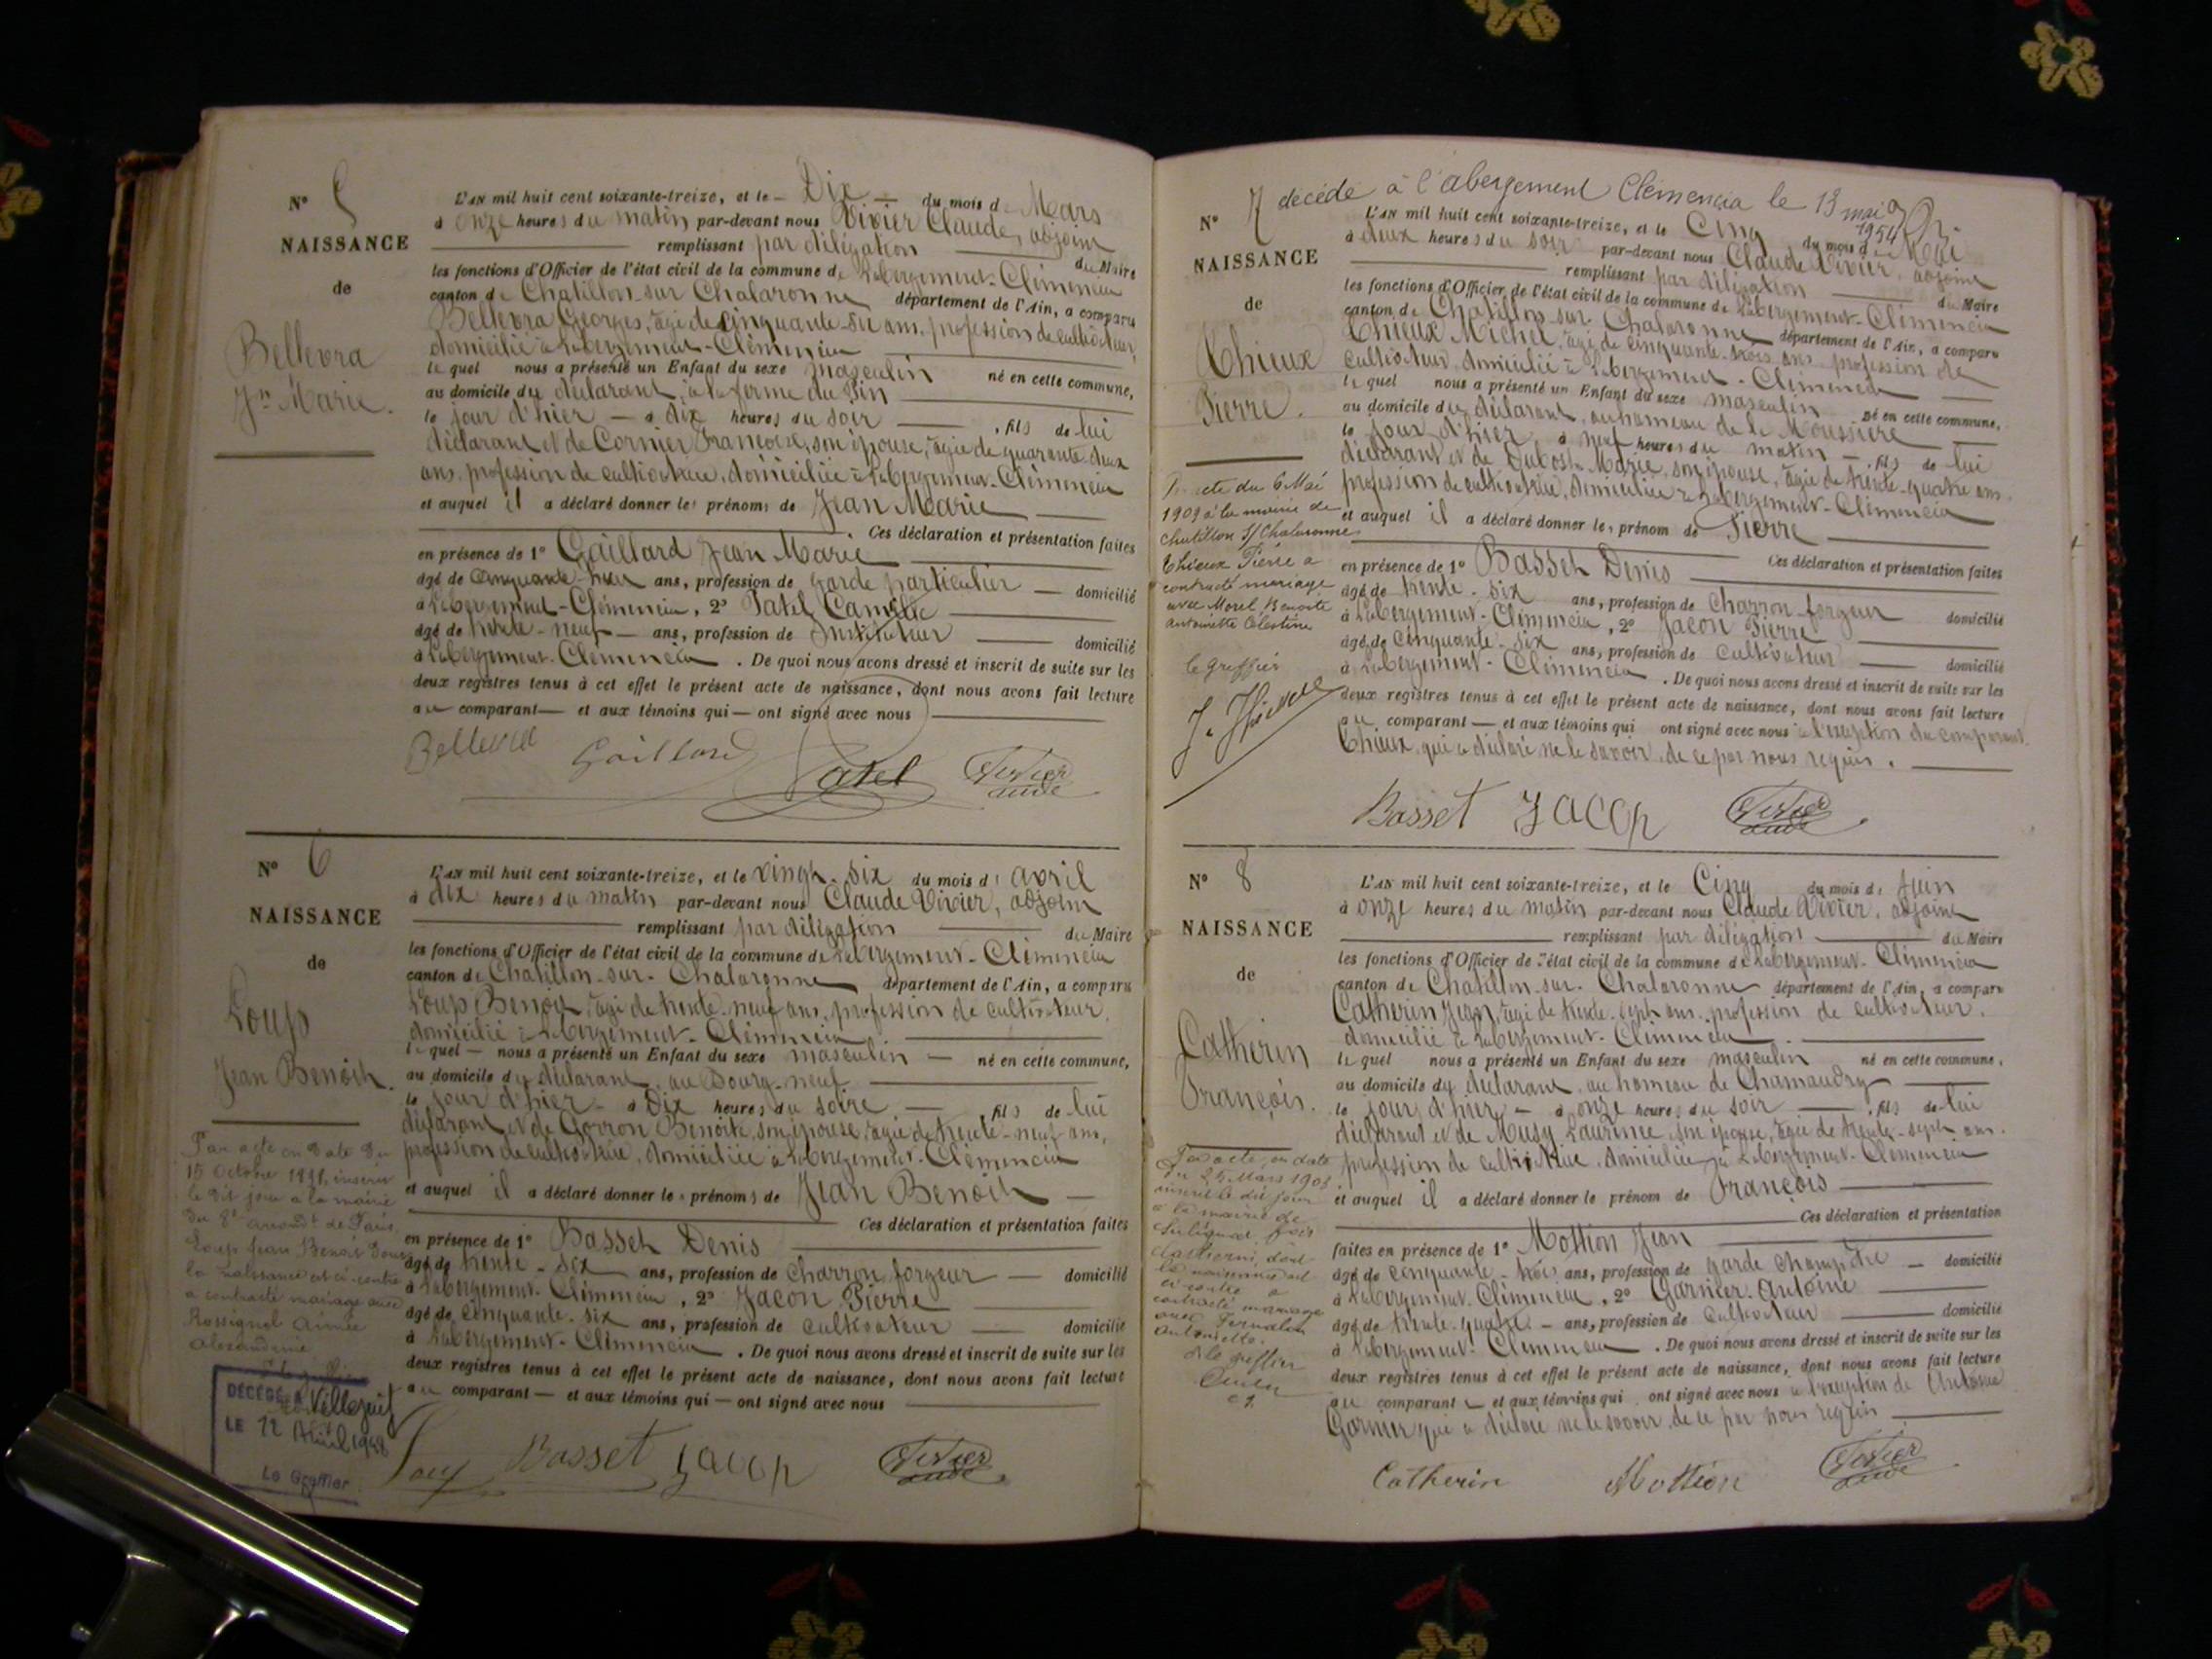 N° 5
NAISSANCE
de
Bellevra
Jn Marie.
L'AN mil huit cent soixante-treize, et le Dix du mois d Mars
à onze heures du matin par-devant nous Vivier Claude, adjoint
remplissant par délégation du Maire
les fonctions d'Officier de l'état civil de la commune de Labergement-Clémencia
canton de Chatillon-sur Chalaronne département de l'Ain, a comparu
Bellevra Georges, âgé de cinquante-six ans, profession de cultivateur,
domicilié à Labergement-Clémencia
lequel nous a présenté un Enfant du sexe masculin né en cette commune,
au domicile du déclarant, à la ferme du Pin
le jour d'hier à dix heures du soir, fils de lui
déclarant et de Cormier Françoise, son épouse, âgée de quarante-deux
ans, profession de cultivatrice, domiciliée à Labergement-Clémencia
et auquel il a déclaré donner les prénoms de Jean Marie
Ces déclaration et présentation faites
en présence de 1° Gaillard Jean Marie
âgé de cinquante- ans, profession de garde particulier domicilié
à Labergement-Clémencia, 2° Patel Camille
âgé de trente-neuf ans, profession de Instituteur domicilié
à Labergement-Clémencia. De quoi nous avons dressé et inscrit de suite sur les
deux registres tenus à cet effet le présent acte de naissance, dont nous avons fait lecture
au comparant et aux témoins qui ont signé avec nous
Bellevra Gaillard Patel Vivier
N° 6
NAISSANCE
de
Loup
Jean Benoit.
Par acte en date du
15 Octobre 1911, inscrit
le dit jour à la mairie
du 8e arrondt de Paris,
Loup Jean Benoit dont
la naissance est ci-contre
a contracté mariage avec
Rossignol Aimée
Alexandrine
DÉCÉDÉ A Villejuif
LE 12 Avril 1948
Le Greffier
L'AN mil huit cent soixante-treize, et le vingt-six du mois d' avril
à dix heures du matin par-devant nous Claude Vivier, adjoint
remplissant par délégation du Maire
les fonctions d'Officier de l'état civil de la commune de Labergement-Clémencia
canton de Chatillon-sur-Chalaronne département de l'Ain, a comparu
Loup Benoit, âgé de trente-neuf ans, profession de cultivateur,
domicilié à Labergement-Clémencia
lequel nous a présenté un Enfant du sexe masculin né en cette commune,
au domicile du déclarant, au Bourg-neuf
le jour d'hier à Dix heures du soire, fils de lui
déclarant et de Gorron Benoite, son épouse, âgée de trente-neuf ans,
profession de cultivatrice, domiciliée à Labergement-Clémencia
et auquel il a déclaré donner les prénoms de Jean Benoit
Ces déclaration et présentation faites
en présence de 1° Basset Denis
âgé de trente-six ans, profession de charron forgeur domicilié
à Labergement-Clémencia, 2° Jacon Pierre
âgé de cinquante-six ans, profession de cultivateur domicilié
à Labergement-Clémencia. De quoi nous avons dressé et inscrit de suite sur les
deux registres tenus à cet effet le présent acte de naissance, dont nous avons fait lecture
au comparant et aux témoins qui ont signé avec nous
Loup Basset Jacon Vivier
décédé à l'abergement Clémencia le 13 mai
1954
N° 7
NAISSANCE
de
Thieux
Pierre.
Pr acte du 6 Mai
1909 à la mairie de
Chatillon S/ Chalaronne
Thieux Pierre a
contracté mariage
avec Morel Benoite
Antoinette Célestine
le Greffier
L'AN mil huit cent soixante-treize, et le Cinq du mois de Mai
à deux heures du soir par-devant nous Claude Vivier, adjoint
remplissant par délégation du Maire
les fonctions d'Officier de l'état civil de la commune de Labergement-Clémencia
canton de Chatillon-sur-Chalaronne département de l'Ain, a comparu
Thieux Michel, âgé de cinquante-trois ans profession de
cultivateur, domicilié à Labergement-Clémencia
lequel nous a présenté un Enfant du sexe masculin né en cette commune,
au domicile du déclarant, au hameau de la Moussière
le jour d'hier à neuf heures du matin, fils de lui
déclarant et de Dubost Marie, son épouse, âgée de trente-quatre ans,
profession de cultivatrice, domiciliée à Labergement-Clémencia
et auquel il a déclaré donner le prénom de Pierre
Ces déclaration et présentation faites
en présence de 1° Basset Denis
âgé de trente-six ans, profession de charron forgeur domicilié
à Labergement-Clémencia, 2° Jacon Pierre
âgé de cinquante-six ans, profession de cultivateur domicilié
à Labergement-Clémencia. De quoi nous avons dressé et inscrit de suite sur les
deux registres tenus à cet effet le présent acte de naissance, dont nous avons fait lecture
au comparant et aux témoins qui ont signé avec nous à l'exception du comparant
Thieux qui a déclaré ne le savoir, de ce par nous requis.
Basset Jacon Vivier
N° 8
NAISSANCE
de
Catherin
François.
Par acte, en date
du 25 Mars 1903
inscrit le dit jour
à la mairie de
Catherin, dont
la naissance est
ci-contre a
contracté mariage
avec
Antoinette.
le greffier
L'AN mil huit cent soixante-treize, et le Cinq du mois de Juin
à onze heures du matin par-devant nous Claude Vivier, adjoint
remplissant par délégation du Maire
les fonctions d'Officier de l'état civil de la commune de Labergement-Clémencia
canton de Chatillon-sur-Chalaronne département de l'Ain, a comparu
Catherin Jean, âgé de trente-sept ans, profession de cultivateur,
domicilié à Labergement-Clémencia
lequel nous a présenté un Enfant du sexe masculin né en cette commune,
au domicile du déclarant, au hameau de Chamaudry
le jour d'hier à onze heures du soir, fils de lui
déclarant et de Musy Laurence, son épouse, âgée de trente-sept ans,
profession de cultivatrice, domiciliée à Labergement-Clémencia
et auquel il a déclaré donner le prénom de François
Ces déclaration et présentation
faites en présence de 1° Mottion Jean
âgé de cinquante-trois ans, profession de garde champêtre domicilié
à Labergement-Clémencia, 2° Garnier Antoine
âgé de trente-quatre ans, profession de cultivateur domicilié
à Labergement-Clémencia. De quoi nous avons dressé et inscrit de suite sur les
deux registres tenus à cet effet le présent acte de naissance, dont nous avons fait lecture
au comparant et aux témoins qui ont signé avec nous à l'exception de Antoine
Garnier qui a déclaré ne le savoir, de ce par nous requis
Catherin Mottion Vivier